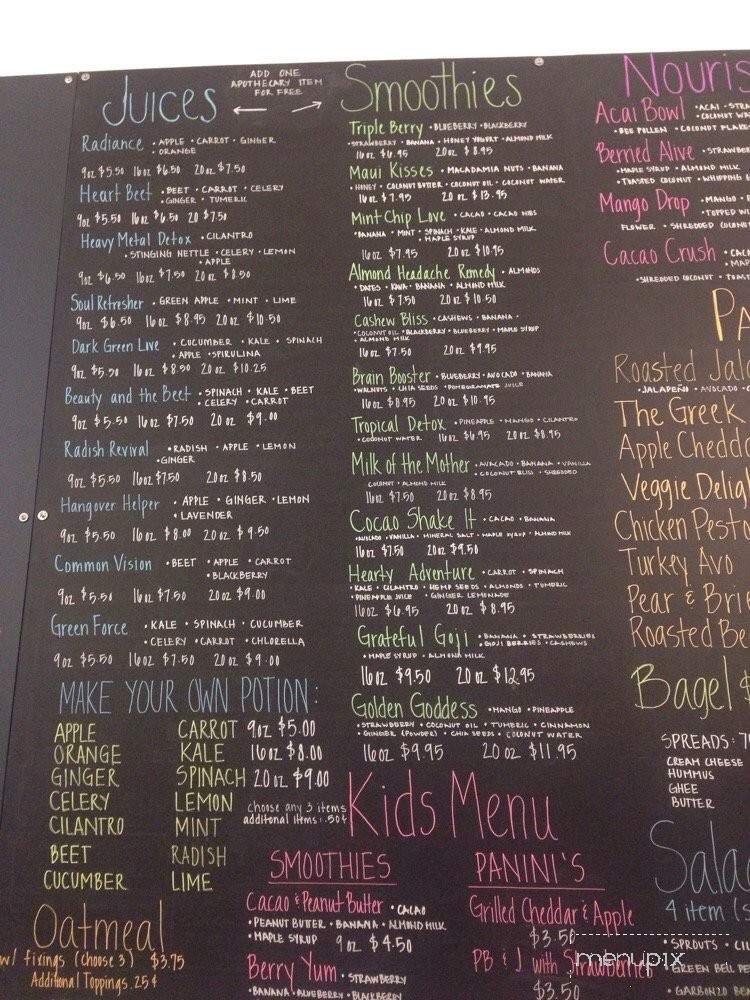 Juices
ADD ONE
APOTHECARY ITEM
FOR FREE
Radiance • APPLE • CARROT • GINGER
• ORANGE
9oz $5.50 16oz $6.50 20oz $7.50
Heart Beet • BEET • CARROT • CELERY
• GINGER • TUMERIC
9oz $5.50 16oz $6.50 20 oz $7.50
Heavy Metal Detox • CILANTRO
• STINGING NETTLE • CELERY • LEMON
• APPLE
9oz $6.50 16oz $7.50 20oz $8.50
Soul Refresher • GREEN APPLE • MINT • LIME
9oz $6.50 16oz $8.95 20oz $10.50
Dark Green Live • CUCUMBER • KALE • SPINACH
• APPLE • SPIRULINA
9oz $5.50 16oz $8.50 20oz $10.25
Beauty and the Beet • SPINACH • KALE • BEET
• CELERY • CARROT
9oz $5.50 16oz $7.50 20oz $9.00
Radish Revival • RADISH • APPLE • LEMON
• GINGER
9oz $5.50 16oz $7.50 20oz $8.50
Hangover Helper • APPLE • GINGER • LEMON
• LAVENDER
9oz $5.50 16oz $8.00 20oz $9.50
Common Vision • BEET • APPLE • CARROT
• BLACKBERRY
9oz $5.50 16oz $7.50 20oz $9.00
Green Force • KALE • SPINACH • CUCUMBER
• CELERY • CARROT • CHLORELLA
9oz $5.50 16oz $7.50 20oz $9.00
MAKE YOUR OWN POTION:
APPLE CARROT 9oz $5.00
ORANGE KALE 16oz $8.00
GINGER SPINACH 20oz $9.00
CELERY LEMON choose any 3 items
CILANTRO MINT additional items: .50¢
BEET RADISH
CUCUMBER LIME
Oatmeal
w/ fixings (choose 3) $3.75
Additional Toppings .25¢
Smoothies
Triple Berry • BLUEBERRY • BLACKBERRY
• STRAWBERRY • BANANA • HONEY YOGURT • ALMOND MILK
16oz $6.95 20oz $8.95
Maui Kisses • MACADAMIA NUTS • BANANA
• HONEY • COCONUT BUTTER • COCONUT OIL • COCONUT WATER
16oz $7.95 20oz $13.95
Mint Chip Love • CACAO • CACAO NIBS
• BANANA • MINT • SPINACH • KALE • ALMOND MILK
• MAPLE SYRUP
16oz $7.95 20oz $10.95
Almond Headache Remedy • ALMONDS
• DATES • KAVA • BANANA • ALMOND MILK
16oz $7.50 20oz $10.50
Cashew Bliss • CASHEWS • BANANA •
• COCONUT OIL • BLACKBERRY • BLUEBERRY • MAPLE SYRUP
• ALMOND MILK
16oz $7.50 20oz $9.95
Brain Booster • BLUEBERRY • AVOCADO • BANANA
• WALNUTS • CHIA SEEDS • POMEGRANATE JUICE
16oz $8.95 20oz $10.95
Tropical Detox • PINEAPPLE • MANGO • CILANTRO
• COCONUT WATER 16oz $6.95 20oz $8.95
Milk of the Mother • AVOCADO • BANANA • VANILLA
• COCONUT BLISS • SHREDDED
COCONUT • ALMOND MILK
16oz $7.50 20oz $8.95
Cocao Shake It • CACAO • BANANA
• AVOCADO • VANILLA • MINERAL SALT • MAPLE SYRUP • ALMOND MILK
16oz $7.50 20oz $9.50
Hearty Adventure • CARROT • SPINACH
• KALE • CILANTRO • HEMP SEEDS • ALMONDS • TUMERIC
• PINEAPPLE JUICE • GINGER LEMONADE
16oz $6.95 20oz $8.95
Grateful Goji • BANANA • STRAWBERRIES
• GOJI BERRIES • CASHEWS
• MAPLE SYRUP • ALMOND MILK
16oz $9.50 20oz $12.95
Golden Goddess • MANGO • PINEAPPLE
• STRAWBERRY • COCONUT OIL • TUMERIC • CINNAMON
• GINGER (POWDER) • CHIA SEEDS • COCONUT WATER
16oz $9.95 20oz $11.95
Kids Menu
SMOOTHIES
Cacao & Peanut Butter • CACAO
• PEANUT BUTTER • BANANA • ALMOND MILK
• MAPLE SYRUP 9oz $4.50
Berry Yum • STRAWBERRY
• BANANA • BLUEBERRY • BLACKBERRY
PANINI'S
Grilled Cheddar & Apple
$3.50
PB & J with Strawberries
$3.50
Nouris
Acai Bowl • ACAI • STRA
• COCONUT WA
• BEE POLLEN • COCONUT FLAKE
Berried Alive • STRAWBE
• MAPLE SYRUP • ALMOND MILK
• TOASTED COCONUT • WHIPPING
Mango Drop • MANGO
• TOPPED W
FLOWER • SHREDDED COCON
Cacao Crush • CAC
• MAP
• SHREDDED COCONUT • TOAST
PA
Roasted Jala
• JALAPEÑO • AVOCADO •
The Greek
Apple Chedda
Veggie Delig
Chicken Pesto
Turkey Avo
Pear & Brie
Roasted Be
Bagel $
SPREADS: 7
CREAM CHEESE
HUMMUS
GHEE
BUTTER
Sala
4 item (s
• SPROUTS • CI
• GREEN BELL PE
• GARBONZO BEA
menupix